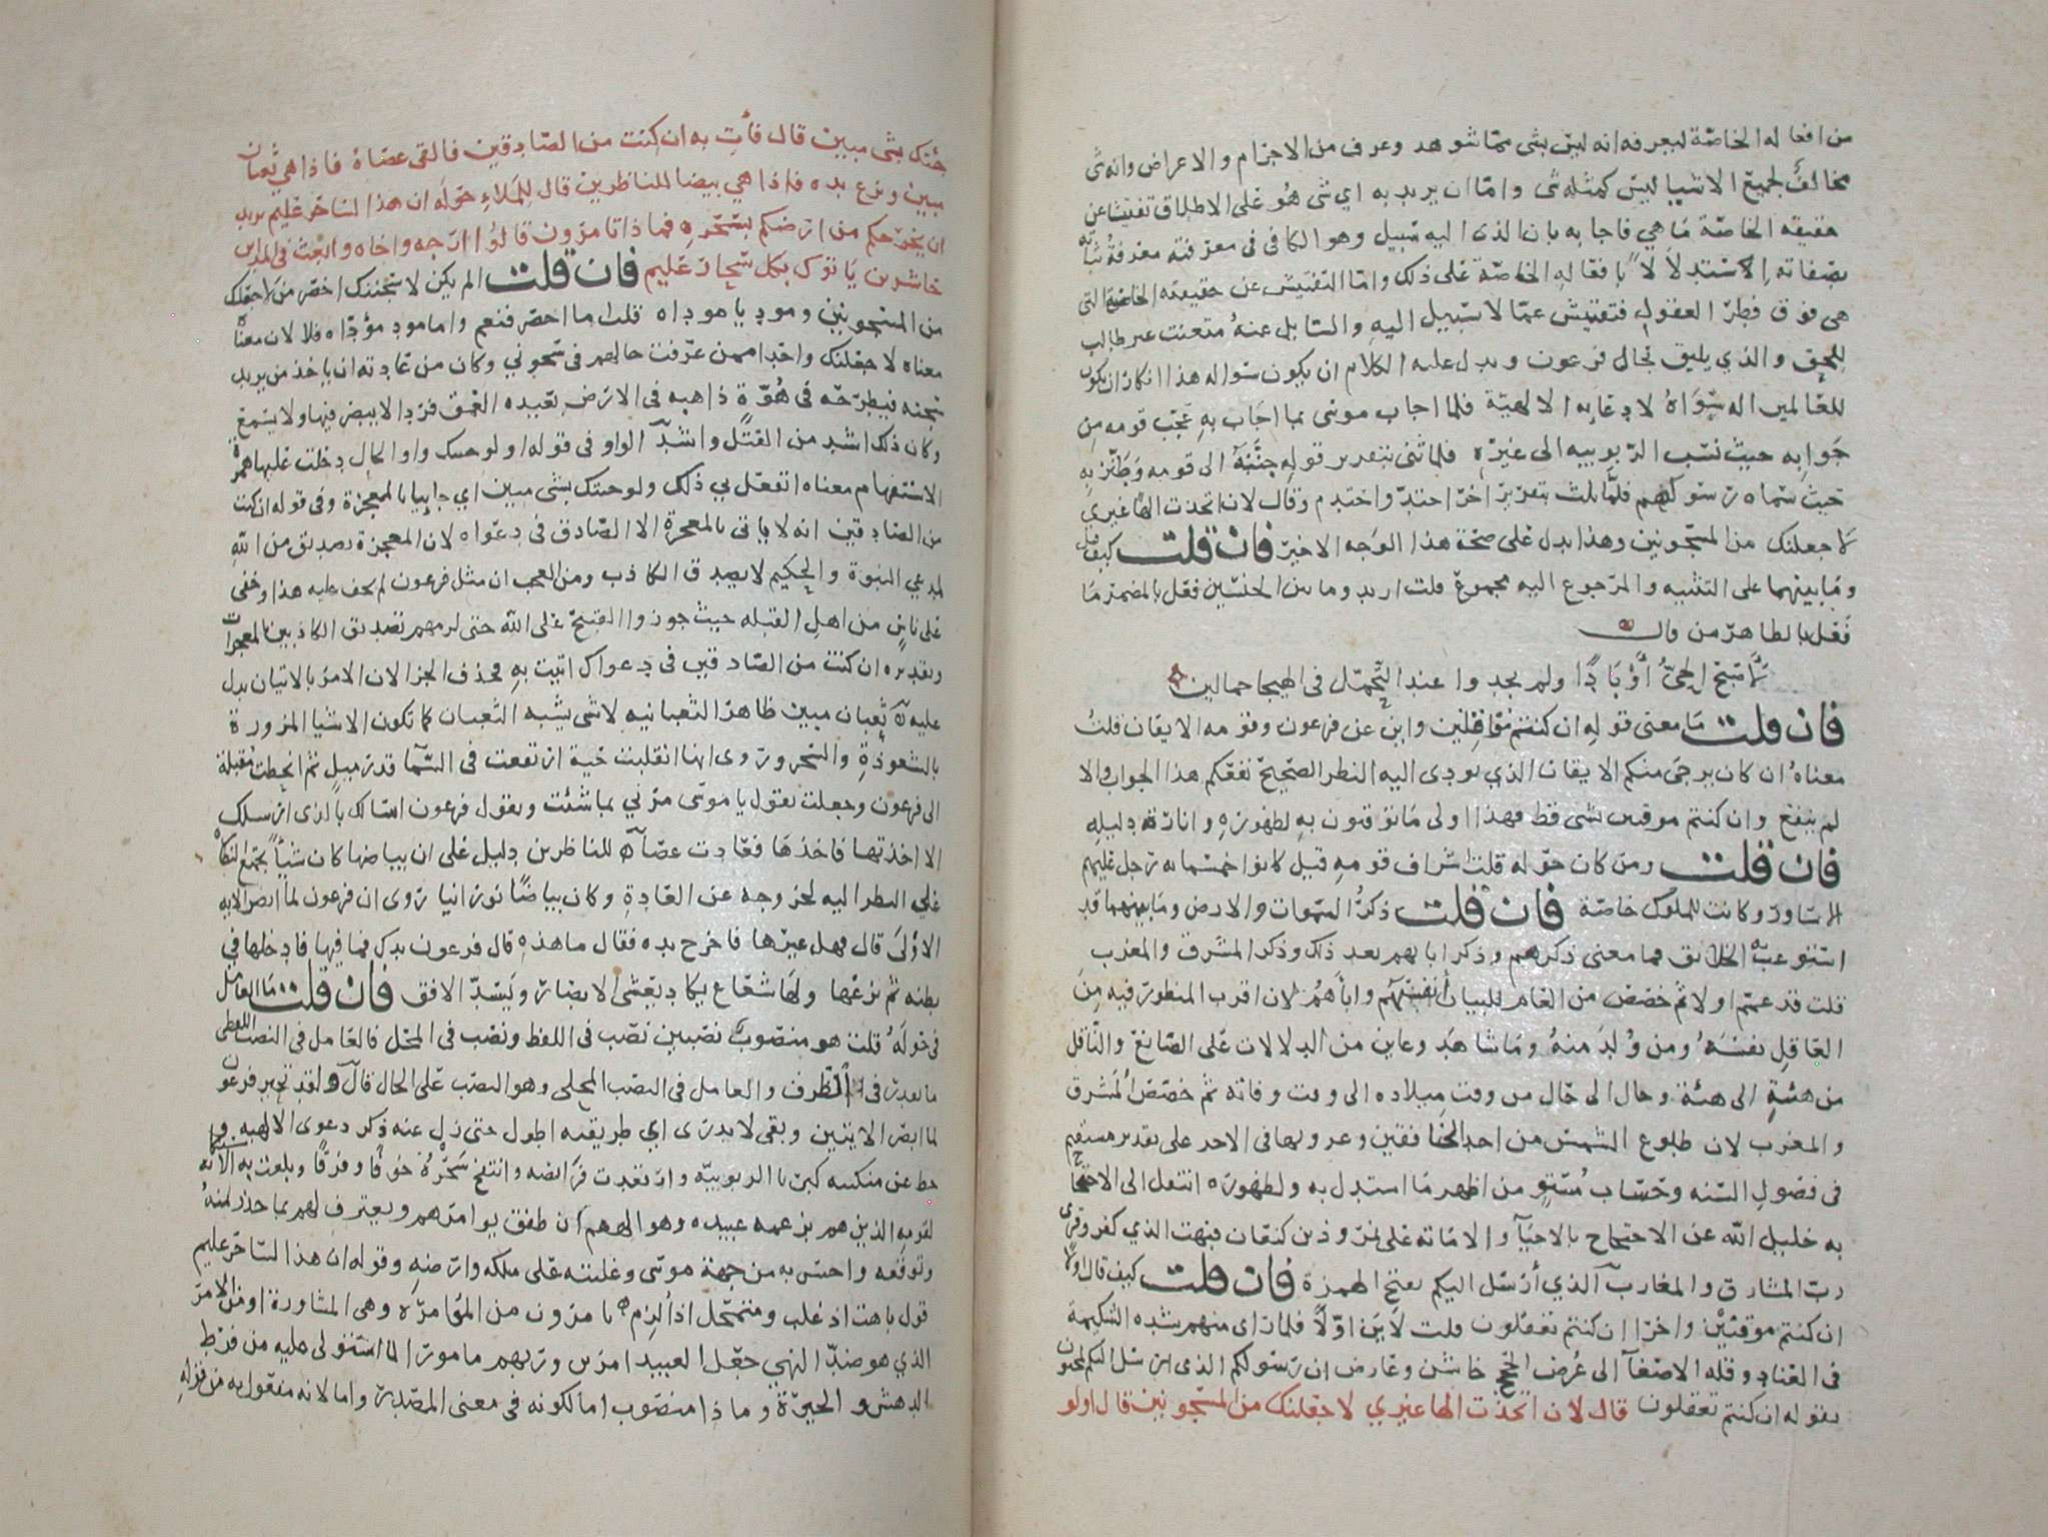 من افعاله الخاصّة ليعرفه انه ليس بشي ممّا شوهد وعرف من الاجرام والاعراض وانه شي
مخالفٌ لجميع الاشيا ليس كمثله شي وامّا ان يريد به اي شي هُو على الاطلاق تفتيشا عن
حقيقته الخاصّة مَا هي فاجابه بان الذي اليه سَبيل وهو الكافي في معرفته معرفةُ ثباته
بصفاته الاستدلالا بافعاله الخاصّة على ذلك وامّا التفتيش عن حقيقته الخاصّة التي
هي فوق فطر العقول فتفتيش عمّا لا سَبيل اليهِ والسّايل عنهُ متعنت غير طالب
للحق والذي يليق بحال فرعون ويدل عليه الكلام ان يكون سُواله هذا انكارا ان يكون
للعَالمين اله سِوَاهُ لادعَايه الالهيّة فلما اجاب موسَى بما اجَاب بهِ عَجّب قومه مِن
جَوابه حيث نسَب الرّبوبيه الى غيره فلما ثنى بتقرير قوله جنّنَهُ الى قومه وَطَنَزبه
حيث سَمّاه رَسولهم فلمّا ثلث بتقرير اخر احتدّ واحتدم وقال لان اتخذت الها غيري
لاجعلنك من المسجونين وهذا يدل على صحّة هذا الوَجه الاخير فان قلت كيف قيل
ومَا بينهما على التثنيه والمرجوع اليه مجموع قلت اريد وما بين الجنسَين فعَل بالمضمر مَا
فَعَل بالظاهر من قال
لاصبَح الحيّ أَوْبَادًا ولم يجدوا عند التّحمّل في الهيجا جمالين
فان قلت مَا معنى قوله ان كنتم مُوقنين واين عن فرعون وقومه الايقان قلت
معناهُ ان كان يرجى منكم الايقان الذي يودي اليه النظر الصّحيح نفعكم هذا الجواب والا
لم ينفع وان كنتم موقنين بشي قط فهذا اولى مَا توقنون بهِ لظهورهِ وانارة دليله
فان قلت ومن كان حَوله قلت اشراف قومهِ قيل كانوا خمسَمايه رَجل عليهم
الاسَاور وكانت للملوك خاصّة فان قلت ذكرُ السّموات والارض ومَا بينهما قد
استوعبَ به الخلايق فما معنى ذكرهم وذكر ابايهم بعد ذلك وذكر المشرق والمغرب
قلت قد عمّم اولا ثم خصّص من العَام للبيان انفسَهم واباَهم لان اقرب المنظور فيه مِنَ
العَاقل نفسَهُ ومن وُلدَ منهُ ومَا شاهَد وعاين من الدلالات عَلى الصّانع والنّاقل
من هيئةٍ الى هيئة وحال الى حَال من وقت مِيلاده الى وقت وفاته ثم خصّص المَشرق
والمغرب لان طلوع الشمس من احد الخافقين وغروبها في الاخر على تقدير مستقيم
في فصُول السّنه وحسَاب مُستوٍ من اظهر مَا استدل به ولظهوره انتقل الى الاحتجاج
به خليل الله عن الاحتجاج بالاحيآ والامَاته على نمروذ بن كنعَان فبهت الذي كفر وقري
ربّ المشارق والمغارب الذي أرْسَل اليكم بفتح الهمزة فان قلت كيف قال اولا
ان كنتم موقنينْ واخرا ان كنتم تعقلون قلت لاَيَن اوّلاً فلمّا راى منهم شدة الشكيمة
في العناد وقله الاصغآ الى عَرض الحجَج خاشَن وعَارض ان رَسُولكم الذي ارسَل اليكم لمجنون
بقوله ان كنتم تعقلون قال لان اتخذت الها غيري لاجعلنك من المسجونين قال اولو
جئتك بشي مبين قال فأت به ان كنت من الصّادقين فالقى عصَاهُ فاذا هي ثعبان
مبين ونزع يده فاذا هي بيضا للناظرين قال للمَلاءِ حَولَه ان هذا لسَاحر عَليم يريد
ان يخرجكم من ارضكم بسَحْره فماذا تامرون قالوُا ارجه واخاه وابعث في المداين
حَاشرين يَاتوك بكل سَحّار عَليم فان قلت الم يكن لاسجننك اخصَر من لاجعَلنك
من المسجونين ومودِيا موداه قلت اما اخصَر فنعم واما مودٍ مؤدّاه فلا لان معناهُ
معناه لاجعلنك واحدا ممن عرَفت حالهم في سجوني وكان من عَادته ان ياخذ من يريد
سَجنه فيطرحَه في هُوّةٍ ذاهبه في الارض بعيده العُمق فردا لا يبصر فيها ولا يسمع
وكان ذلك اشد من القتل واشدّ الواو في قوله اولو جيتك واو الحال دخلت عليها همزة
الاستفهام معناه اتفعَل بي ذلك ولو جيتك بشي مبين اي جاييا بالمعجزة وفي قوله ان كنت
من الصَادقين انه لا ياتي بالمعجزة الا الصّادق في دعوَاه لان المعجزة تصديق من اللهِ
لمدعي النبوة والحكيم لا يصدق الكاذب ومن العجب ان مثل فرعون لم يخف عليه هذا وخفي
على ناسٍ من اهل القبله حيث جوزوا القبيحَ على الله حتى لزمهم تصديق الكاذبين بالمعجزات
وتقديره ان كنت من الصّادقين في دعواك اتيت بهِ فحذف الجزا لان الامرَ بالاتيان يدل
عليه ثعبان مبين ظاهر الثعبانيه لا شي يشبه الثعبان كما تكون الاشيا المزورة
بالشعوذةِ والسّحر ورَوى انها انقلبت حَية ارتفعت في السّمآ قدر ميلٍ ثم انحطت مُقبلة
الى فرعون وجعلت تقول يا موسَى مرني بما شئت ويقول فرعون اسَالك بالذي ارسَلك
الا اخذتها فاخذها فعَادت عصًا للناظرين دليل على ان بياضها كان شياً يجتمع النظّاره
على النظر اليه لخروجه عن العَادةِ وكان بياضًا نورَانيا رَوى ان فرعون لما ابصَر الايه
الاولى قال فهل غيرها فاخرج يده فقال ما هذهِ قال فرعون يدك فما فيها فادخلها في
ابطه ثم نزعها ولها شعَاع يكاد يغشى الابصَار ويَسدّ الافق فان قلت مَا العَامل
في حَولَهُ قلت هو منصوب نصبين نصَب في اللفظ ونصَب في المحَل فالعَامل في النصب اللفظي
ما يقدر في الظرف والعامل في النصب المحلي وهو النصَب على الحال قال ولقد تحير فرعون
لما ابصر الايتين وبقي لا يدرى اي طريقيه اطول حتى زل عنه ذكر دعوى الالهيه و
حط عن منكبيه كبريا الربوبيّه وارتعدت فرايصه وانتفخ سَحْرهُ خَوفا وفرقًا وبلغت به الاستكانه
لقومه الذين هم بزعمه عبيده وهو الههم ان طفق يوامرهم ويعترف لهم بما حذر منهُ
وتوقعه واحسّ به من جهة موسَى وغلبته على ملكه وارضهِ وقوله ان هذا السَاحر عليم
قول باهت اذ غلب ومتمحّل اذا الزم تامرون من المؤامرَةِ وهي المشاورة او من الامر
الذي هو ضدّ النهي جعَل العبيد امرين وربهم مامورا لما استولى عليه من فرطِ
الدهش والحيرَة وماذا منصوب اما لكونه في معنى المصدر واما لانه مفعول به من قوله